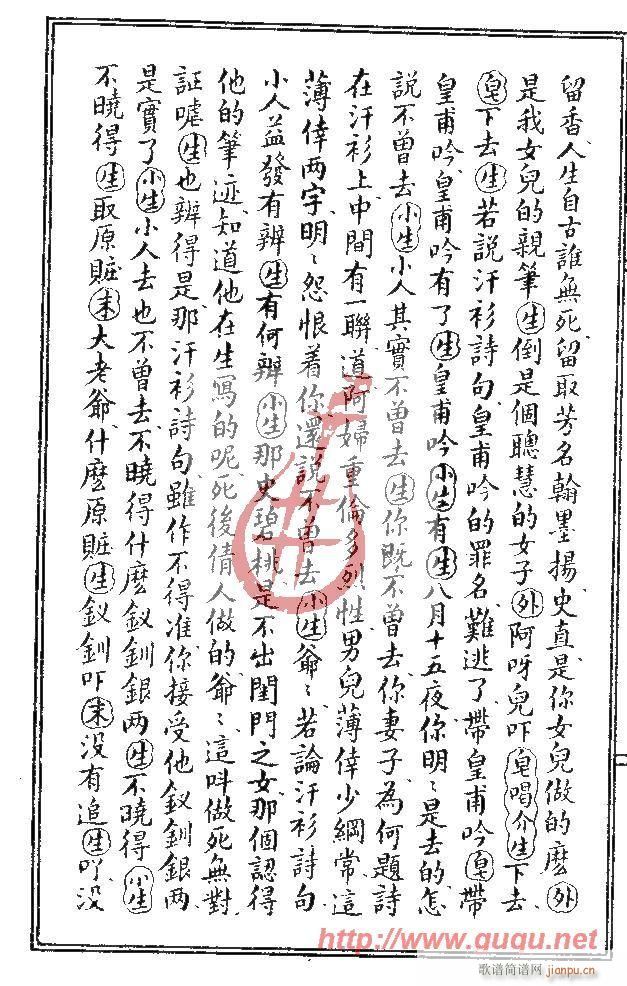 留香人生自古誰無死留取芳名翰墨揚史直是你女兒做的麼外
是我女兒的親筆生倒是個聰慧的女子外阿呀兒吓皂喝介生下去
皂下去生若說汗衫詩句皇甫吟的罪名難逃了帶皇甫吟皂帶
皇甫吟皇甫吟有了生皇甫吟小生有生八月十五夜你明〻是去的怎
說不曾去小生小人其實不曾去生你既不曾去你妻子為何題詩
在汗衫上中間有一聯道阿婦重倫多烈性男兒薄倖少綱常這
薄倖两字明〻怨恨着你還說不曾去小生爺〻若論汗衫詩句
小人益發有辨生有何辨小生那史碧桃是不出閨門之女那個認得
他的筆迹知道他在生寫的呢死後倩人做的爺〻這叫做死無對
証嘘生也辨得是那汗衫詩句雖作不得准你接受他釵釧銀两
是實了小生小人去也不曾去不曉得什麽釵釧銀两生不曉得小生
不曉得生取原賍末大老爺什麽原賍生釵釧吓末没有追生吖没
http://www.ququ.net
歌谱简谱网
jianpu.cn